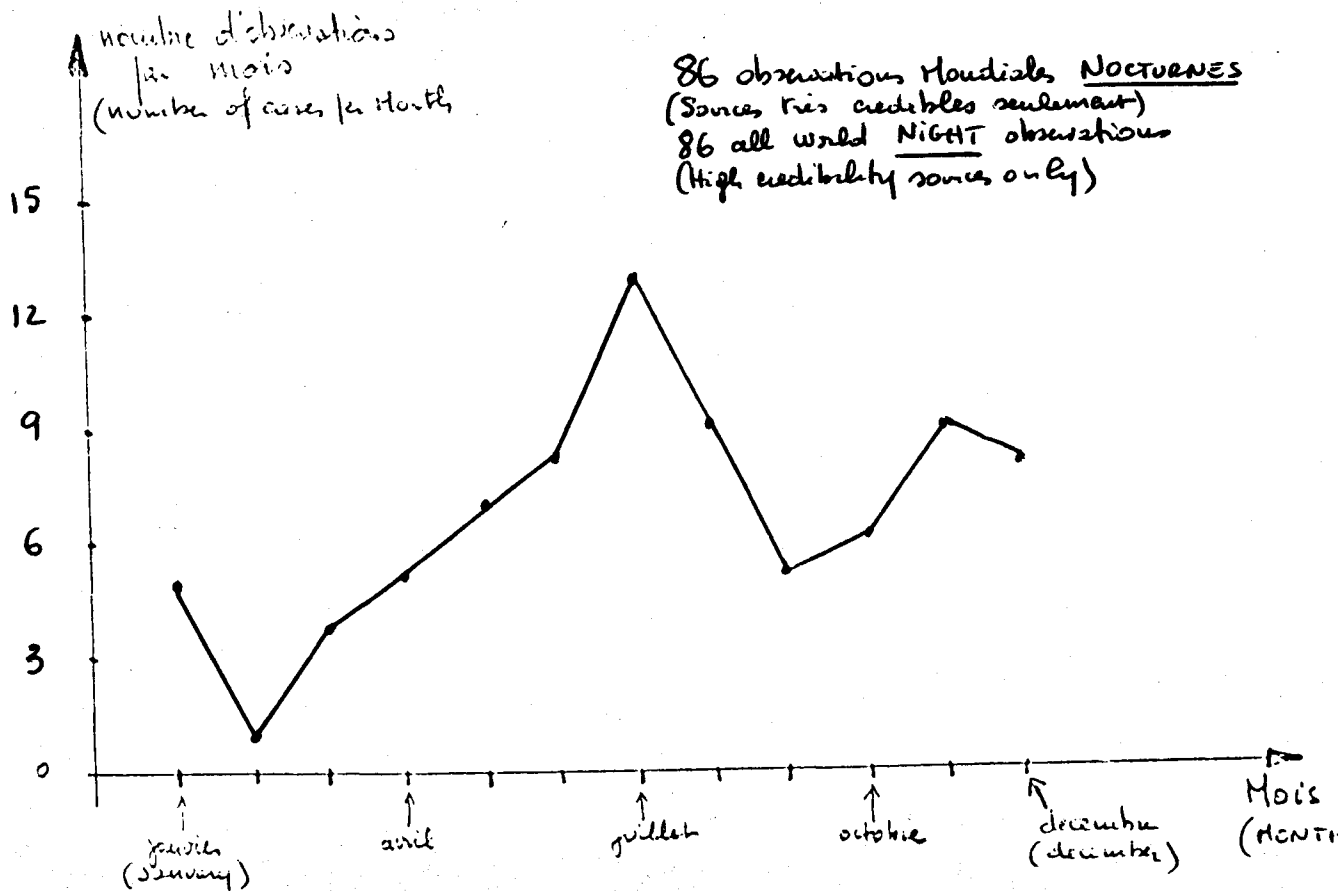 nombre d'observations
par mois
(number of cases per Month
86 observations Mondiales NOCTURNES
(Sources très credibles seulement)
86 all world NIGHT observations
(High credibility sources only)
15
12
9
6
3
0
janvier
(January)
avril
juillet
octobre
decembre
(december)
Mois
(MONTH